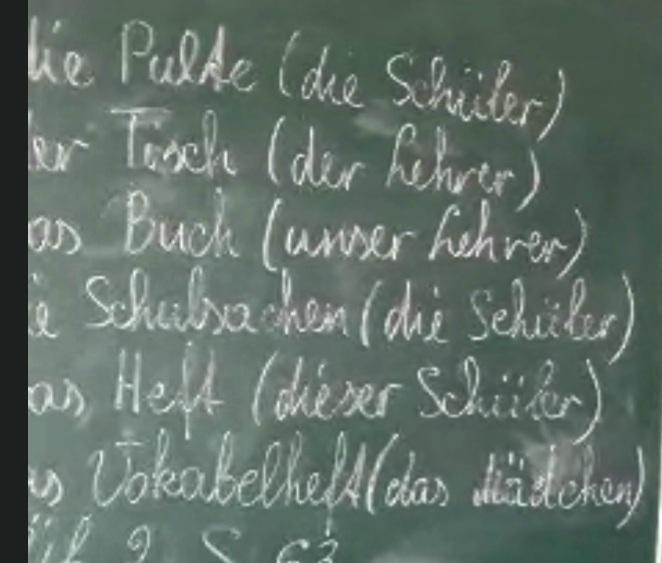 die Pulte (die Schüler)
der Tisch (der Lehrer)
das Buch (unser Lehrer)
die Schulsachen (die Schüler)
das Heft (dieser Schüler)
das Vokabelheft (das Mädchen)
Üb. 2 S. 63